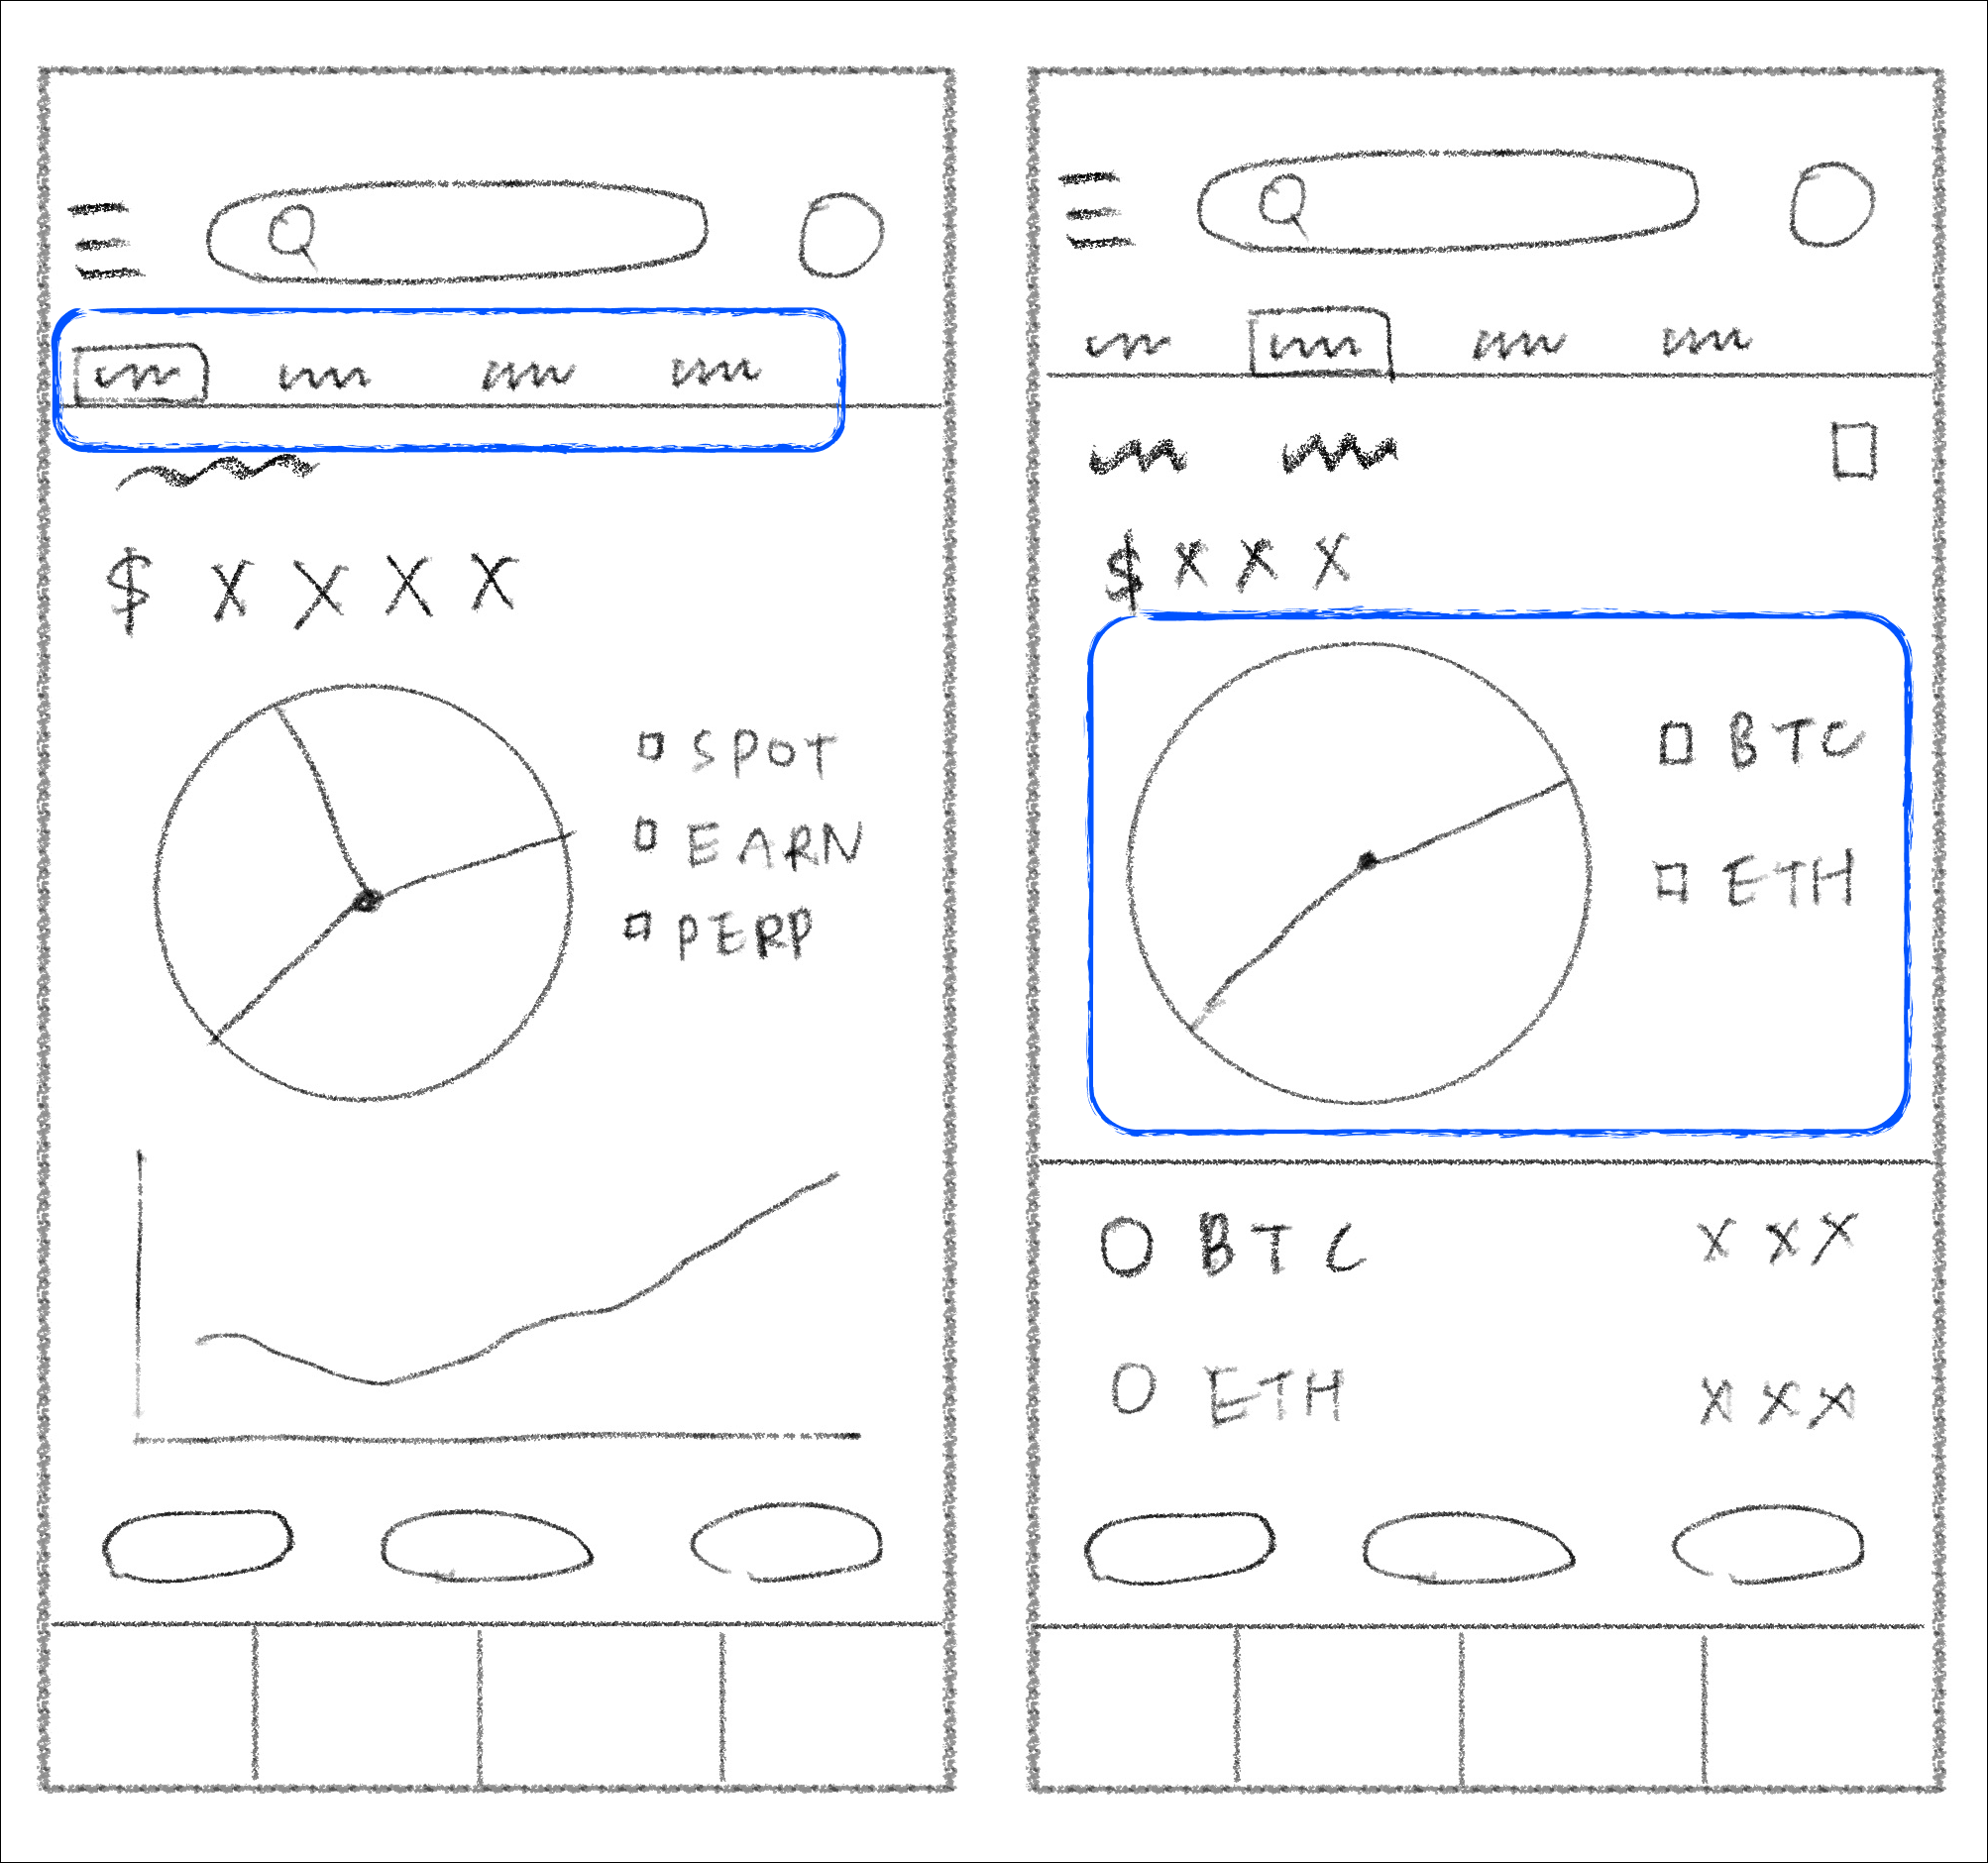 $ X X X X
SPOT
EARN
PERP
$ X X X
BTC
ETH
BTC X X X
ETH X X X